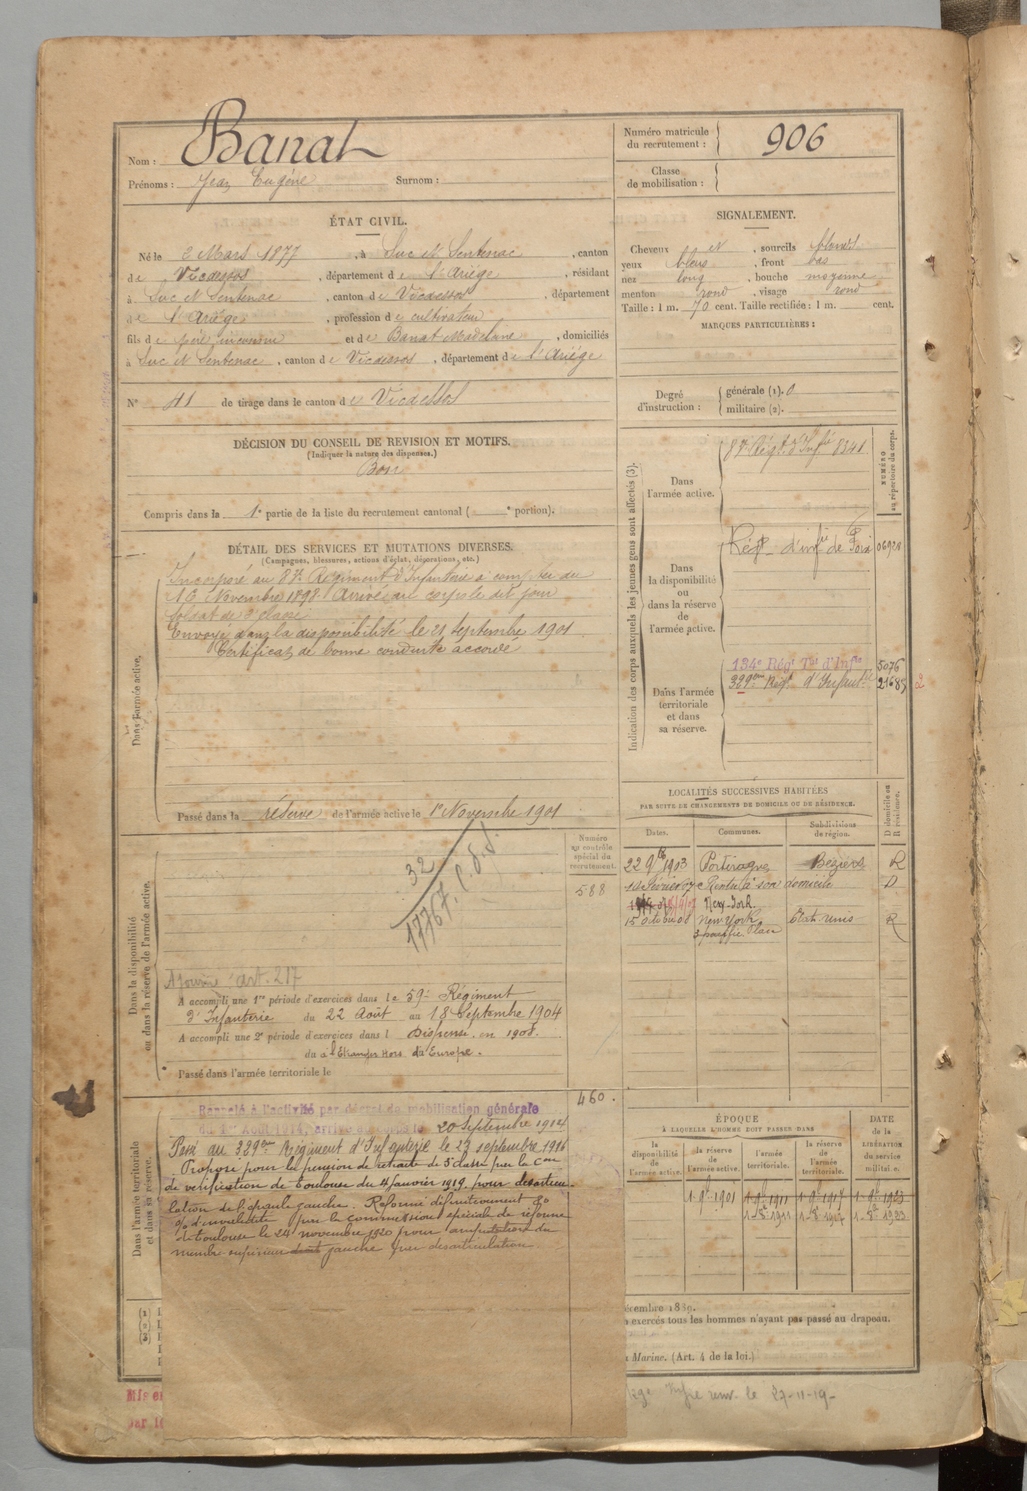 Nom : Banat
Prénoms : Jean Eugène Surnom :
Numéro matricule
du recrutement : 906
Classe
de mobilisation :
ÉTAT CIVIL.
Né le 2 Mars 1877, à Suc et Sentenac, canton
de Vicdessos, département de l'Ariège, résidant
à Suc et Sentenac, canton de Vicdessos, département
de l'Ariège, profession de cultivateur
fils de père inconnu et de Banat Madelaine, domiciliés
à Suc et Sentenac, canton de Vicdessos, département de l'Ariège
N° 41 de tirage dans le canton de Vicdessos
SIGNALEMENT.
Cheveux et, sourcils blonds
yeux bleus, front bas
nez long, bouche moyenne
menton rond, visage rond
Taille : 1 m. 70 cent. Taille rectifiée : 1 m. cent.
MARQUES PARTICULIÈRES :
Degré
d'instruction :
générale (1). 0
militaire (2).
DÉCISION DU CONSEIL DE REVISION ET MOTIFS.
(Indiquer la nature des dispenses.)
Bon
Compris dans la 1e partie de la liste du recrutement cantonal ( e portion).
DÉTAIL DES SERVICES ET MUTATIONS DIVERSES.
(Campagnes, blessures, actions d'éclat, décorations, etc.)
Dans l'armée active.
Incorporé au 87e Régiment d'Infanterie à compter du
16 Novembre 1898. Arrivé au corps le dit jour
Soldat de 2e classe
Envoyé dans la disponibilité le 21 septembre 1901.
Certificat de bonne conduite accordé
Passé dans la réserve de l'armée active le 1er Novembre 1901
Indication des corps auxquels les jeunes gens sont affectés (3).
NUMÉRO
au répertoire du corps.
Dans
l'armée active.
87e Régt d'Infie 8341
Dans
la disponibilité
ou
dans la réserve
de
l'armée active.
Régt d'infie de Foix 06921
Dans l'armée
territoriale
et dans
sa réserve.
134e Régt Tal d'Infie 5076
329ème Régt d'Infantie 21685 2
LOCALITÉS SUCCESSIVES HABITÉES
PAR SUITE DE CHANGEMENTS DE DOMICILE OU DE RÉSIDENCE.
Dates. Communes. Subdivisions
de région. D domicile ou
R résidence.
22 9bre 1903 Portiragnes Béziers R
Rentré à son domicile D.
New-York
15 octobre 08 New York États unis R
Numéro
au contrôle
spécial du
recrutement.
588
Dans la disponibilité
ou dans la réserve de l'armée active.
32
17767
Ajourné art. 217
A accompli une 1re période d'exercices dans le 59e Régiment
d'Infanterie du 22 Août au 18 Septembre 1904
A accompli une 2e période d'exercices dans l Dispensé en 1908.
du à l'Etranger Hors d'Europe.
Passé dans l'armée territoriale le
460.
Dans l'armée territoriale
et dans sa réserve.
Rappelé à l'activité par décret de mobilisation générale
du 1er Août 1914, arrivé au corps le 20 Septembre 1914
Passé au 329ème Régiment d'Infanterie le 23 septembre 1916
Proposé pour la pension de retraite de 5e classe par la Con
de vérification de Toulouse du 4 janvier 1919 pour désarticu-
lation de l'épaule gauche. Réformé définitivement 80
% d'invalidité par la commission spéciale de réforme
de Toulouse le 24 novembre 1920 pour amputation du
membre supérieur droit gauche par désarticulation
ÉPOQUE
À LAQUELLE L'HOMME DOIT PASSER DANS
la
disponibilité
de
l'armée active.
la réserve
de
l'armée active.
l'armée
territoriale.
la réserve
de
l'armée
territoriale.
DATE
de la
LIBÉRATION
du service
militaire.
1. 9e 1901 1. 9e 1911 1. 9e 1917 1. 9e 1923
1. 8e 1911 1. 8e 1917 1. 8e 1923
(1)
(2)
(3)
écembre 1889.
exercés tous les hommes n'ayant pas passé au drapeau.
Marine. (Art. 4 de la loi.)
Mis e
par l
renv. le 27-11-19-